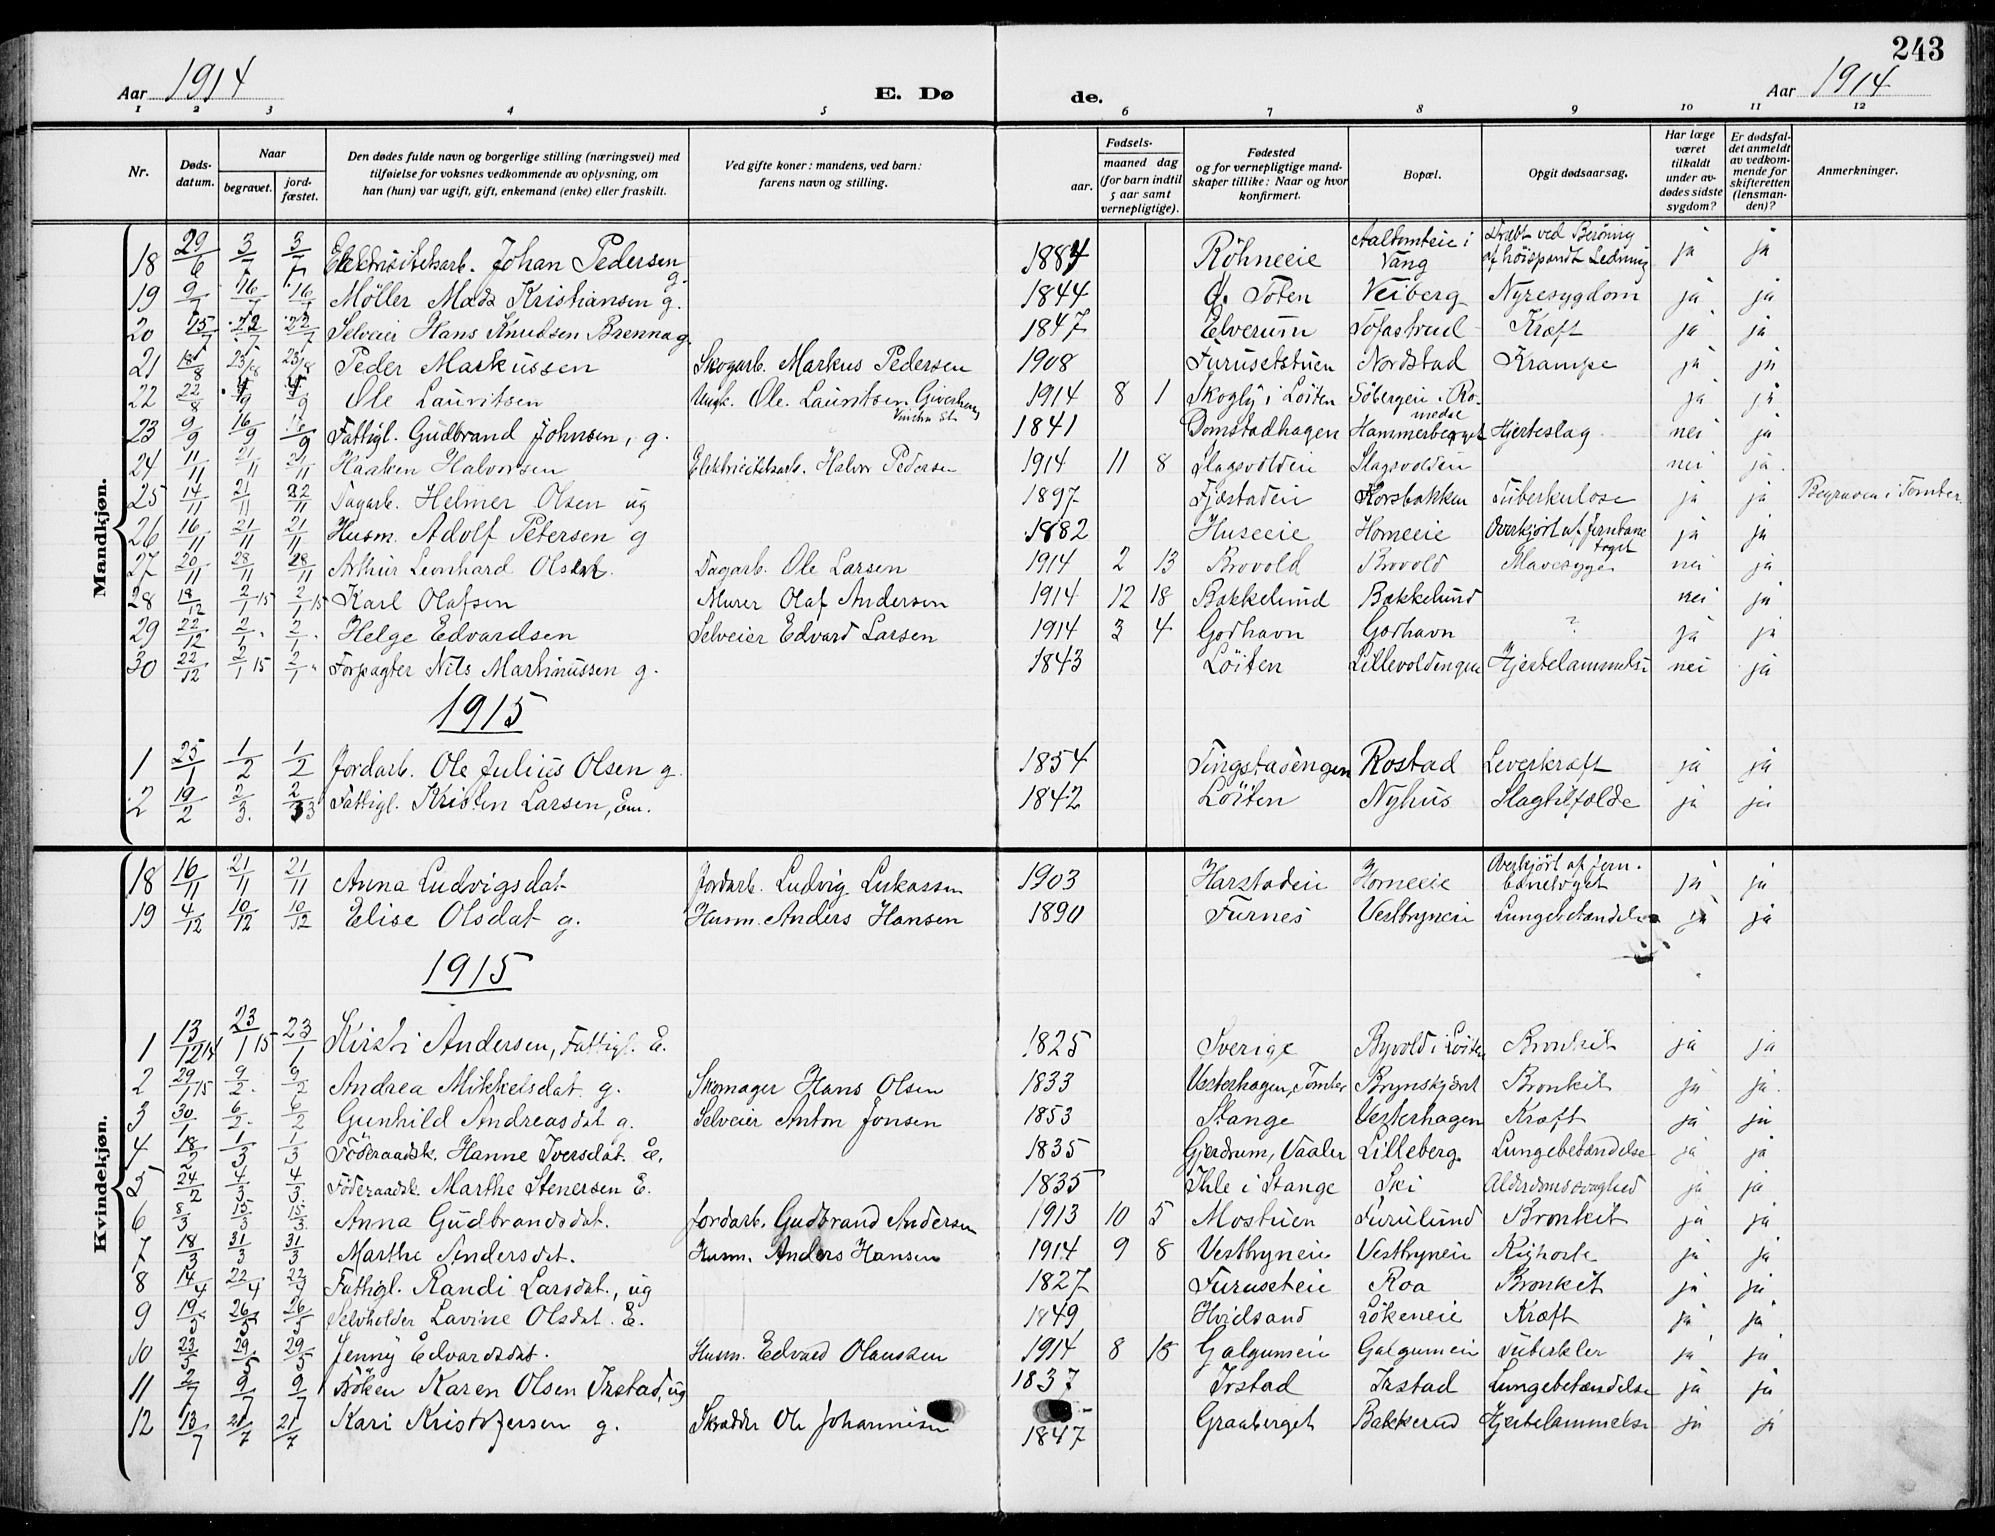 243
Aar 1914
E. Dø
de.
Aar 1914
1 2 3 4 5 6 7 8 9 10 11 12
Nr.
Døds-datum.
Naar
begravet.
jord-fæstet.
Den dødes fulde navn og borgerlige stilling (næringsvei) med
tilføielse for voksnes vedkommende av oplysning, om
han (hun) var ugift, gift, enkemand (enke) eller fraskilt.
Ved gifte koner: mandens, ved barn:
farens navn og stilling.
Fødsels-
aar.
maaned dag
(for barn indtil
5 aar samt
vernepligtige).
Fødested
og for vernepligtige mand-
skaper tillike: Naar og hvor
konfirmert.
Bopæl.
Opgit dødsaarsag.
Har læge
været
tilkaldt
under av-
dødes sidste
sygdom?
Er dødsfal-
det anmeldt
av vedkom-
mende for
skifteretten
(lensman-
den)?
Anmerkninger.
Mandkjøn.
18 29/6 3/7 3/7 Elektricitetsarb. Johan Pedersen g. 1884 Röhneeie Aaltomteie i Vang Dræbt ved Beröring af höispændt Ledning ja ja
19 9/7 16/7 16/7 Møller Mads Kristiansen g. 1844 Ö. Toten Veiberg Nyresygdom ja ja
20 15/7 22/7 22/7 Selveier Hans Knudsen Brenna g. 1847 Elverum Tofastrud Kræft ja ja
21 18/8 23/8 23/8 Peder Markussen Skogarb. Markus Pedersen 1908 Furusetstuen Nordstad Krampe ja ja
22 22/8 /9 /9 Ole Lauritsen Ungk. Ole Lauritsen 1914 8 1 Skogly i Löiten Söbergeie i Romedal ja ja
23 9/9 16/9 /9 Fattigl. Gudbrand Johnsen, g. 1841 Domstadhagen Hammerberget Hjerteslag nei ja
24 11/11 21/11 21/11 Haaken Halvorsen Elektricitetsarb. Halvor Pedersen 1914 11 8 Slagsvoldeie Slagsvoldeie nei ja
25 14/11 21/11 22/11 Dagarb. Helmer Olsen ug 1897 Fjæstadeie Korsbakken Tuberkulose ja ja Begraven i Tomter
26 16/11 21/11 21/11 Husm. Adolf Petersen g 1882 Huseeie Horneeie Overkjört af Jernbanetoget ja ja
27 20/11 28/11 28/11 Arthur Leonhard Olsen. Dagarb. Ole Larsen 1914 2 13 Brovold Brovold Mavesyge nei ja
28 18/12 2/1 15 2/1 15 Karl Olafsen Murer Olaf Andersen 1914 12 18 Bakkelund Bakkelund nei ja
29 22/12 2/1 2/1 Helge Edvardsen Selveier Edvard Larsen 1914 3 4 Godhavn Godhavn ? ja ja
30 22/12 2/1 15 2/1 Forpagter Nils Martinussen g. 1843 Löiten Lillevoldengen Hjertelammelse nei ja
1915
1 25/1 1/2 1/2 Jordarb. Ole Julius Olsen g. 1854 Tingstadengen Rostad Leverkræft ja ja
2 19/2 2/3 2/3 Fattigl. Kristen Larsen, Em. 1842 Löiten Nyhus Slagtilfælde ja ja
Kvindekjøn.
18 16/11 21/11 21/11 Anna Ludvigsdat. Jordarb. Ludvig Lukassen 1903 Harstadeie Horneeie Overkjört af jernbanetoget ja ja
19 4/12 10/12 10/12 Elise Olsdat g. Husm. Anders Hansen 1890 Furnes Vestbyneie Lungebetændelse ja ja
1915
1 13/12 14 23/1 15 23/1 Kirsti Andersen, Fattigl. E. 1825 Sverige Byvold i Löiten Bronkit ja ja
2 29/1 15 9/2 9/2 Andrea Mikkelsdat. g. Skomager Hans Olsen 1833 Vesterhagen, Tomter Brynskjæret Bronkit ja ja
3 30/1 6/2 6/2 Gunhild Andreasdat g. Selveier Anton Jonsen 1853 Stange Vesterhagen Kræft ja ja
4 18/2 1/3 1/3 Föderaadsk. Hanne Iversdat. E. 1835 Gjerdrum, Vaaler Lilleberg Lungebetændelse ja ja
5 24/2 4/3 4/3 Föderaadsk. Marthe Stenersen E. 1835 Ihle i Stange Ski Alderdomssvaghed ja ja
6 8/3 15/3 15/3 Anna Gudbrandsdat. Jordarb. Gudbrand Andersen 1913 10 5 Mostuen Furulund Bronkit ja ja
7 18/3 31/3 31/3 Marthe Andersdat. Husm. Anders Hansen 1914 9 8 Vestbyneie Vestbyneie Kighoste ja ja
8 14/4 22/4 22/4 Fattigl. Randi Larsdat., ug 1827 Furuseteie Roa Bronkit ja ja
9 19/5 26/5 26/5 Selvholder Lavine Olsdat. E. 1849 Hvidsand Lökeneie Kræft ja ja
10 23/5 29/5 29/5 Jenny Edvardsdat. Husm. Edvard Olausen 1914 8 15 Galgumeie Galgumeie Tuberkler ja ja
11 2/7 9/7 9/7 Fröken Karen Olsen Irstad, ug 1837 Irstad Irstad Lungebetændelse ja ja
12 13/7 21/7 21/7 Kari Kristofersen g. Skrædder Ole Johannesen 1847 Graaberget Bakkerud Hjertelammelse ja ja